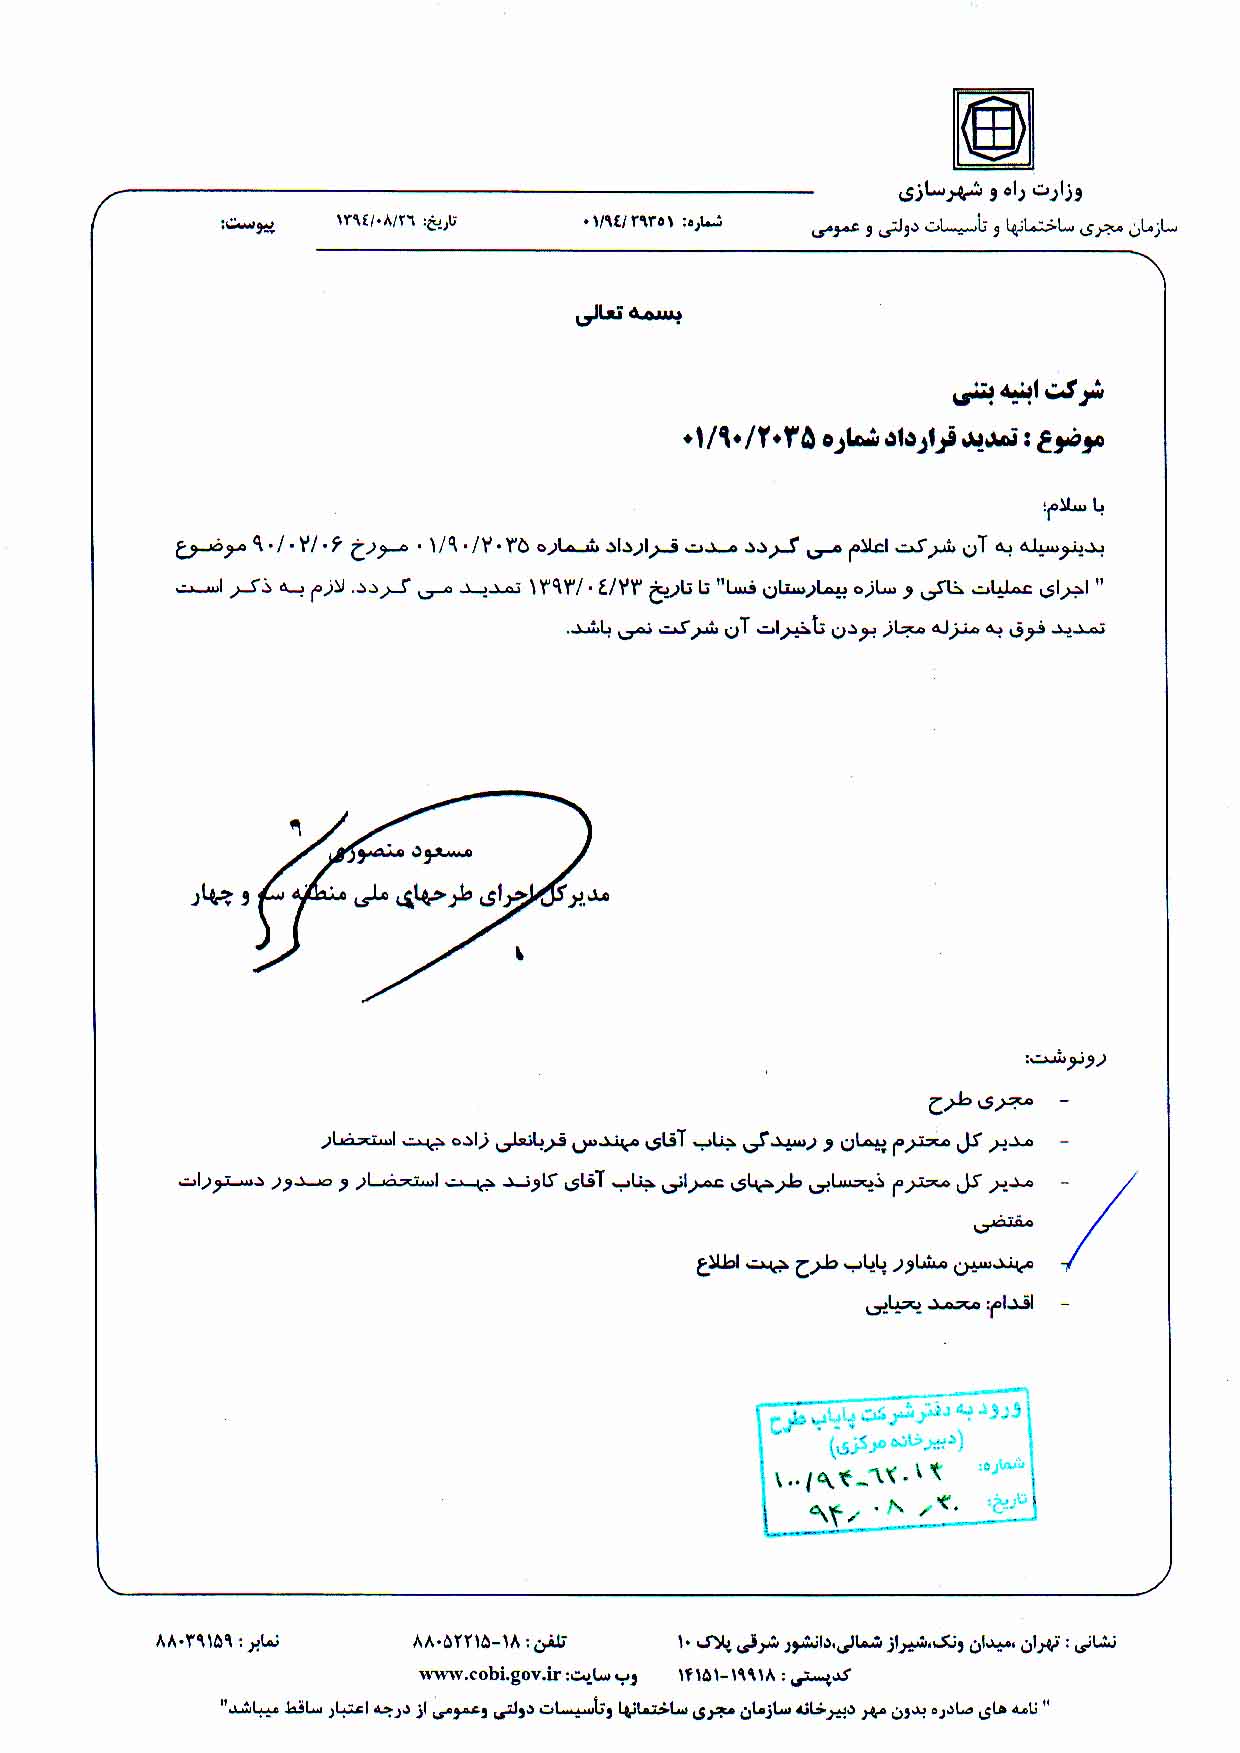 وزارت راه و شهرسازی
سازمان مجری ساختمانها و تأسیسات دولتی و عمومی
شماره: ۰۱/۹٤/۲۹۳۵۱
تاریخ: ۱۳۹٤/۰۸/۲٦
پیوست:
بسمه تعالی
شرکت ابنیه بتنی
موضوع : تمدید قرارداد شماره ۰۱/۹۰/۲۰۳۵
با سلام؛
بدینوسیله به آن شرکت اعلام می گردد مدت قرارداد شماره ۰۱/۹۰/۲۰۳۵ مورخ ۹۰/۰۲/۰۶ موضوع
" اجرای عملیات خاکی و سازه بیمارستان فسا" تا تاریخ ۱۳۹۳/۰٤/۲۳ تمدید می گردد. لازم به ذکر است
تمدید فوق به منزله مجاز بودن تأخیرات آن شرکت نمی باشد.
مسعود منصوری
مدیرکل اجرای طرحهای ملی منطقه سه و چهار
رونوشت:
- مجری طرح
- مدیر کل محترم پیمان و رسیدگی جناب آقای مهندس قربانعلی زاده جهت استحضار
- مدیر کل محترم ذیحسابی طرحهای عمرانی جناب آقای کاوند جهت استحضار و صدور دستورات
مقتضی
- مهندسین مشاور پایاب طرح جهت اطلاع
- اقدام: محمد یحیایی
ورود به دفتر شرکت پایاب طرح
(دبیرخانه مرکزی)
شماره: ۱۰۰/۹۴-۶۲۰۱۴
تاریخ: ۹۴/۰۸/۳۰
نشانی : تهران ،میدان ونک،شیراز شمالی،دانشور شرقی پلاک ۱۰
تلفن : ۱۸-۸۸۰۵۲۲۱۵
نمابر : ۸۸۰۳۹۱۵۹
کدپستی : ۱۹۹۱۸-۱۴۱۵۱
وب سایت: www.cobi.gov.ir
" نامه های صادره بدون مهر دبیرخانه سازمان مجری ساختمانها وتأسیسات دولتی وعمومی از درجه اعتبار ساقط میباشد"